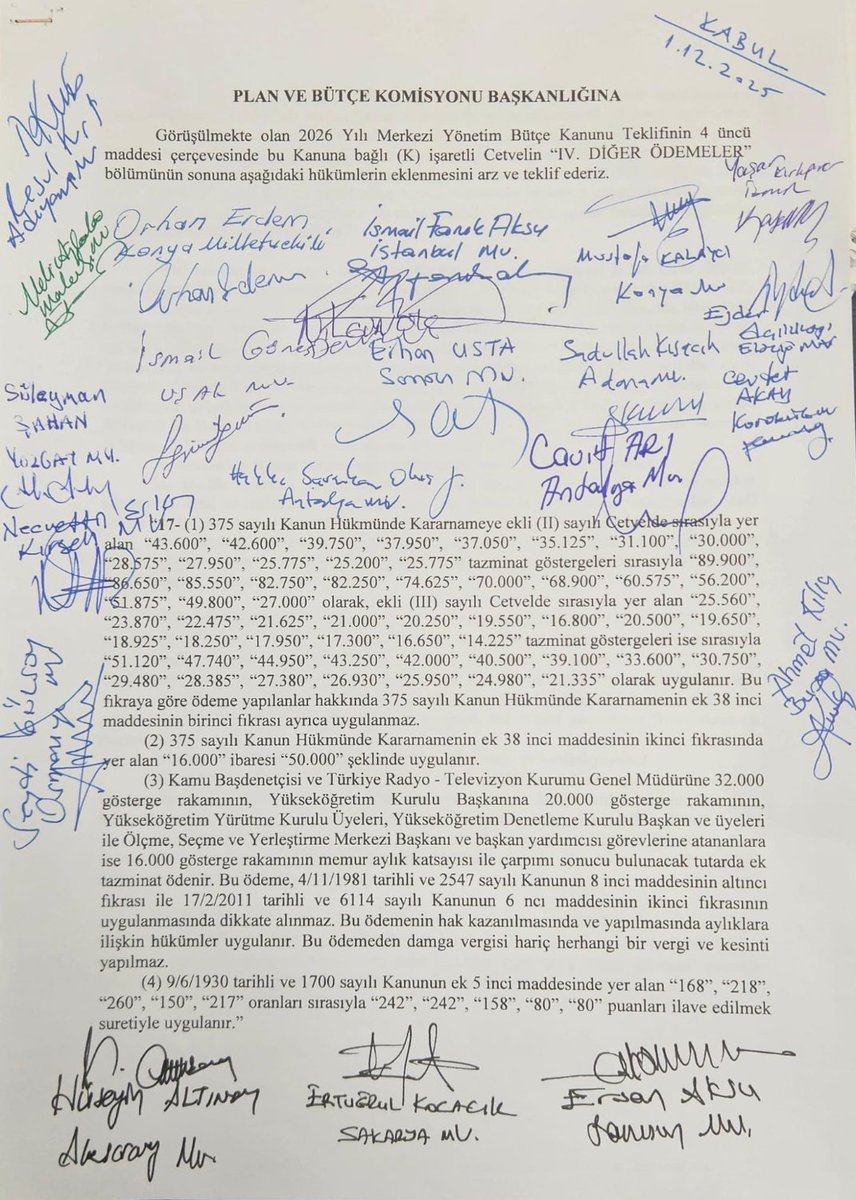 KABUL
1.12.2025
PLAN VE BÜTÇE KOMİSYONU BAŞKANLIĞINA
Görüşülmekte olan 2026 Yılı Merkezi Yönetim Bütçe Kanunu Teklifinin 4 üncü
maddesi çerçevesinde bu Kanuna bağlı (K) işaretli Cetvelin “IV. DİĞER ÖDEMELER”
bölümünün sonuna aşağıdaki hükümlerin eklenmesini arz ve teklif ederiz.
Adıyaman
Orhan Erdem
Konya Milletvekili
İsmail Faruk Aksu
İstanbul Mv.
Mustafa KALAYCI
Konya Mv
Yaşar Kırkpınar
İzmir
Orhan Erdem
İsmail Güneş
UŞAK MV.
Erhan USTA
Samsun Mv.
Sadullah Kısacık
Adana Mv.
Ejder
Açıkkapı
Elazığ Mv
Cevdet
AKAY
Karabük
Süleyman
ŞAHAN
YOZGAT MV.
Antalya Mv.
Cavit ARI
Antalya Mv
Necmettin Erkan
Kırşehir Mv
“17- (1) 375 sayılı Kanun Hükmünde Kararnameye ekli (II) sayılı Cetvelde sırasıyla yer
alan “43.600”, “42.600”, “39.750”, “37.950”, “37.050”, “35.125”, “31.100”, “30.000”,
“28.575”, “27.950”, “25.775”, “25.200”, “25.775” tazminat göstergeleri sırasıyla “89.900”,
“86.650”, “85.550”, “82.750”, “82.250”, “74.625”, “70.000”, “68.900”, “60.575”, “56.200”,
“51.875”, “49.800”, “27.000” olarak, ekli (III) sayılı Cetvelde sırasıyla yer alan “25.560”,
“23.870”, “22.475”, “21.625”, “21.000”, “20.250”, “19.550”, “16.800”, “20.500”, “19.650”,
“18.925”, “18.250”, “17.950”, “17.300”, “16.650”, “14.225” tazminat göstergeleri ise sırasıyla
“51.120”, “47.740”, “44.950”, “43.250”, “42.000”, “40.500”, “39.100”, “33.600”, “30.750”,
“29.480”, “28.385”, “27.380”, “26.930”, “25.950”, “24.980”, “21.335” olarak uygulanır. Bu
fıkraya göre ödeme yapılanlar hakkında 375 sayılı Kanun Hükmünde Kararnamenin ek 38 inci
maddesinin birinci fıkrası ayrıca uygulanmaz.
(2) 375 sayılı Kanun Hükmünde Kararnamenin ek 38 inci maddesinin ikinci fıkrasında
yer alan “16.000” ibaresi “50.000” şeklinde uygulanır.
(3) Kamu Başdenetçisi ve Türkiye Radyo - Televizyon Kurumu Genel Müdürüne 32.000
gösterge rakamının, Yükseköğretim Kurulu Başkanına 20.000 gösterge rakamının,
Yükseköğretim Yürütme Kurulu Üyeleri, Yükseköğretim Denetleme Kurulu Başkan ve üyeleri
ile Ölçme, Seçme ve Yerleştirme Merkezi Başkanı ve başkan yardımcısı görevlerine atananlara
ise 16.000 gösterge rakamının memur aylık katsayısı ile çarpımı sonucu bulunacak tutarda ek
tazminat ödenir. Bu ödeme, 4/11/1981 tarihli ve 2547 sayılı Kanunun 8 inci maddesinin altıncı
fıkrası ile 17/2/2011 tarihli ve 6114 sayılı Kanunun 6 ncı maddesinin ikinci fıkrasının
uygulanmasında dikkate alınmaz. Bu ödemenin hak kazanılmasında ve yapılmasında aylıklara
ilişkin hükümler uygulanır. Bu ödemeden damga vergisi hariç herhangi bir vergi ve kesinti
yapılmaz.
(4) 9/6/1930 tarihli ve 1700 sayılı Kanunun ek 5 inci maddesinde yer alan “168”, “218”,
“260”, “150”, “217” oranları sırasıyla “242”, “242”, “158”, “80”, “80” puanları ilave edilmek
suretiyle uygulanır.”
Ahmet Kılıç
Bursa Mv.
HÜSEYİN ALTINSOY
Aksaray Mv.
ERTUĞRUL KOCACIK
SAKARYA MV.
Ersan AKSU
Samsun Mv.